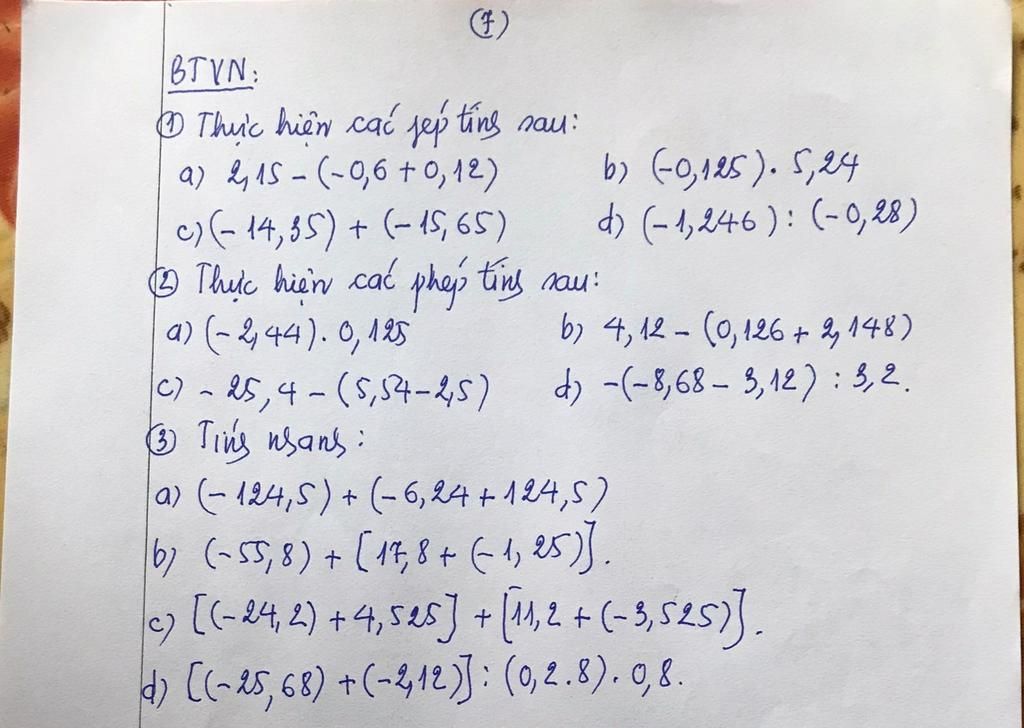 (7)
BTVN:
① Thực hiện các fép tính sau:
a) 2,15 - (-0,6 + 0,12) b) (-0,125). 5,24
c) (-14,35) + (-15,65) d) (-1,246) : (-0,28)
② Thực hiện các phép tính sau:
a) (-2,44). 0,125 b) 4,12 - (0,126 + 2,148)
c) - 25,4 - (5,54 - 2,5) d) -(-8,68 - 3,12) : 3,2.
③ Tính nhanh:
a) (-124,5) + (-6,24 + 124,5)
b) (-55,8) + [17,8 + (-1,25)].
c) [(-24,2) + 4,525] + [11,2 + (-3,525)].
d) [(-25,68) + (-2,12)] : (0,2.8). 0,8.